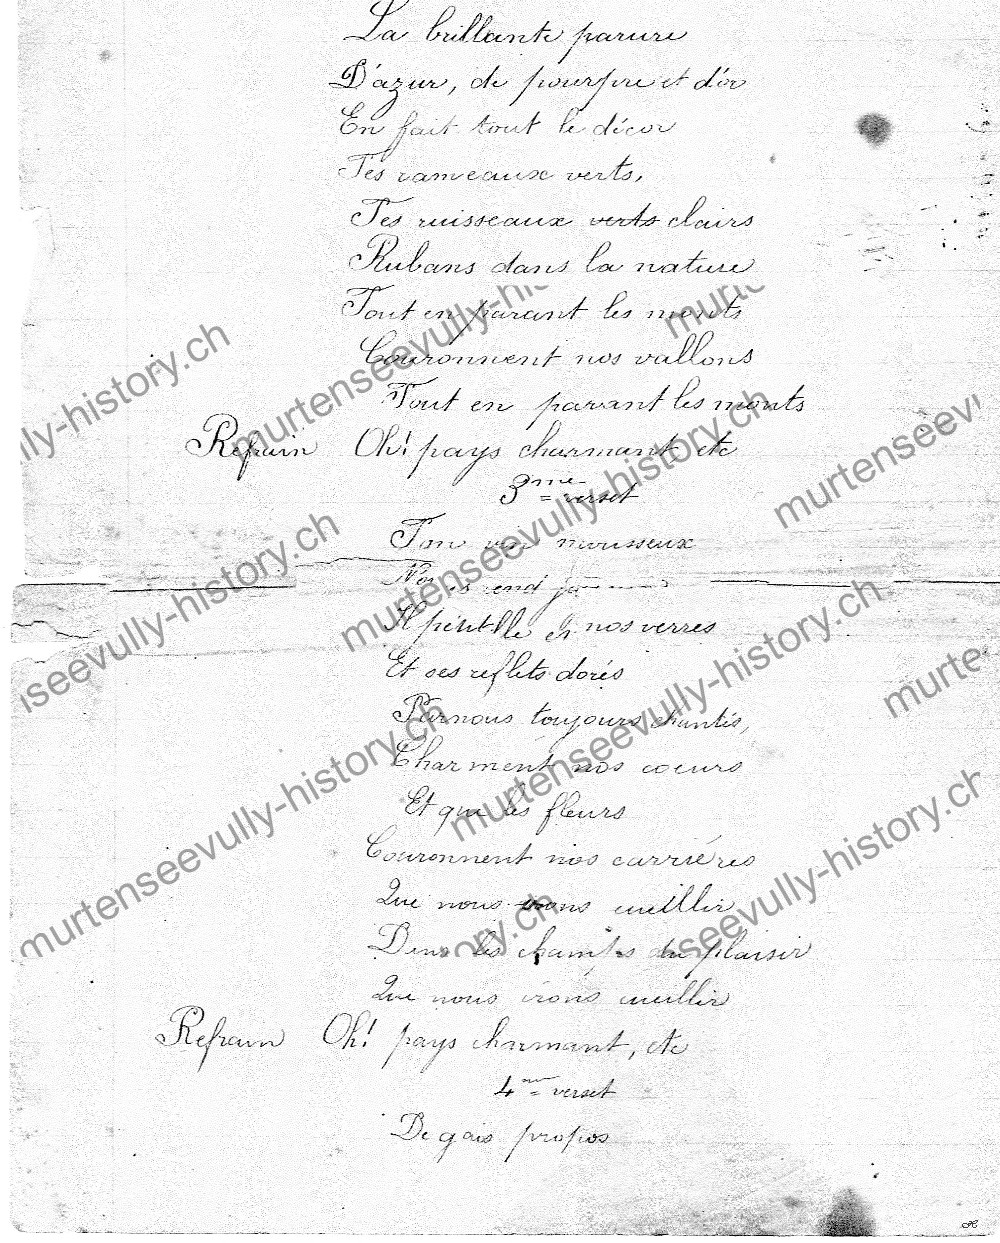 La brillante parure
D'azur, de pourpre et d'or
En fait tout le décor
Tes rameaux verts,
Tes ruisseaux verts clairs
Rubans dans la nature
Tout en parant les monts
Couronnent nos vallons
Tout en parant les monts
Refrain Oh! pays charmant etc
3me verset
Ton vin mousseux
Nous rend
Il pétille en nos verres
Et ses reflets dorés
Par nous toujours chantés,
Charment nos coeurs
Et que les fleurs
Couronnent nos carrières
Que nous irons cueillir
Dans les champs du plaisir
Que nous irons cueillir
Refrain Oh! pays charmant, etc
4me verset
De gais propos
murtenseevully-history.ch
murtenseevully-history.ch
murtenseevully-history.ch
murtenseevully-history.ch
murtenseevully-history.ch
murtenseevully-history.ch